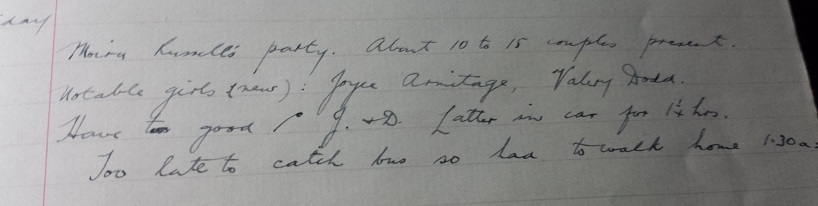 day
Moira Russell's party. About 10 to 15 couples present.
Notable girls (new): Joyce Armitage, Valery Dodd.
Have good J. & D. Latter in car for 1¼ hrs.
Too late to catch bus so had to walk home 1.30 a.